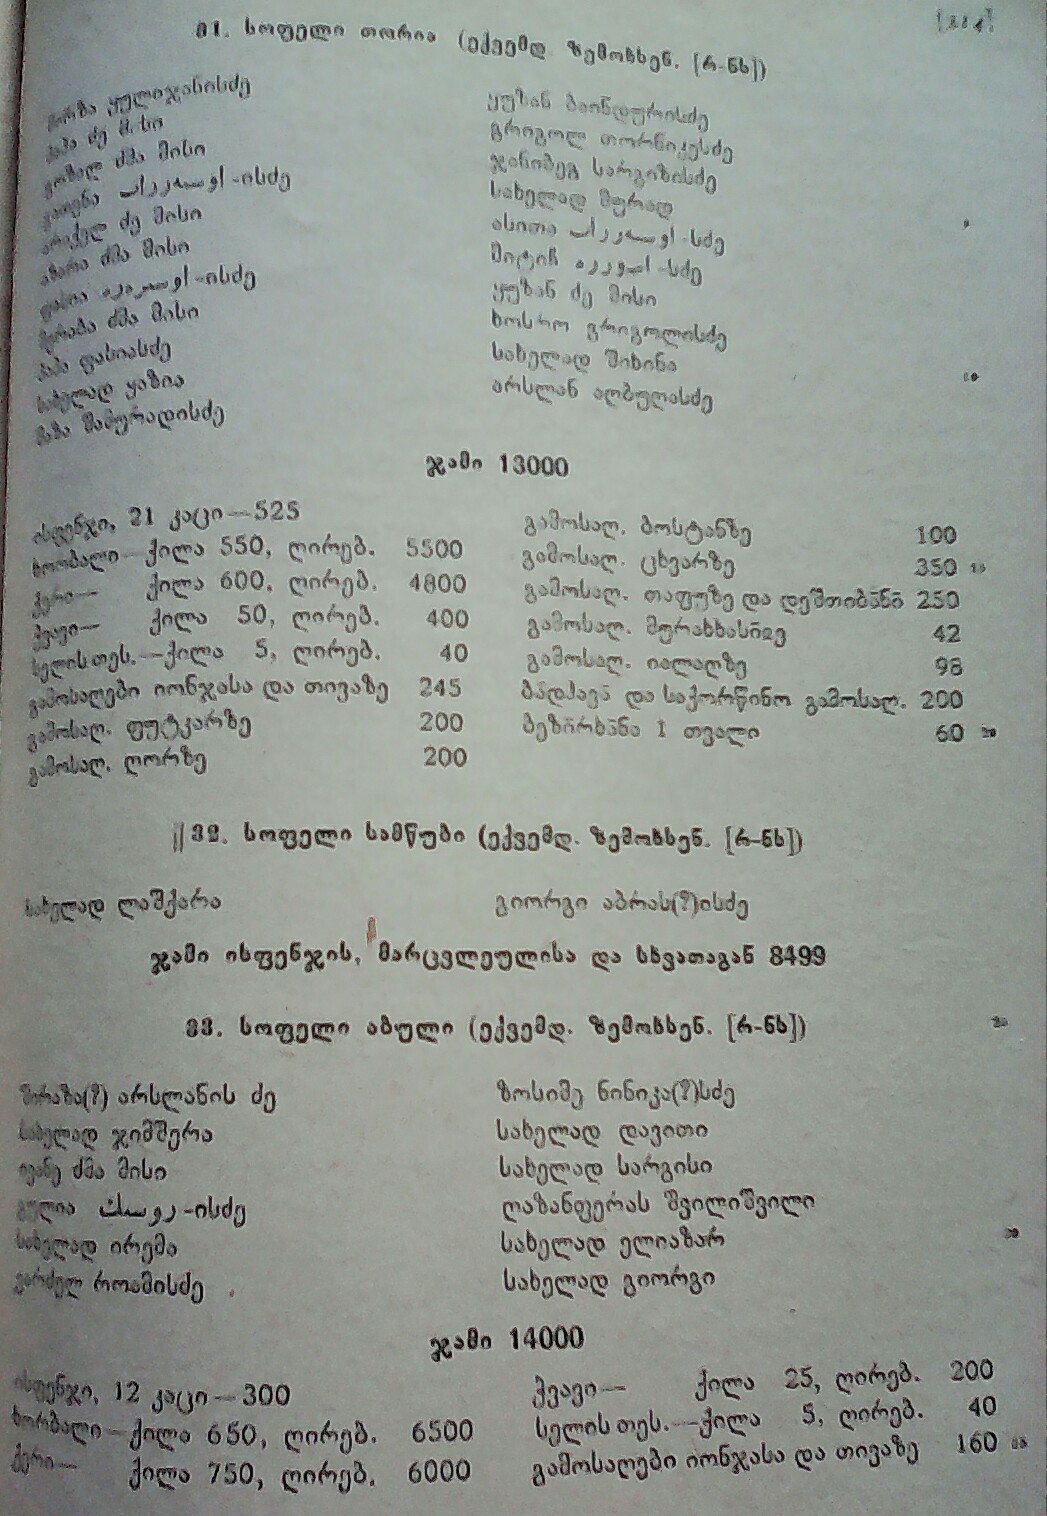 31. სოფელი თორია (ექვემდ. ზემოხსენ. [რ-ნს])
მირზა ყულიჯანისძე
პაპა ძე მისი
გოზალ ძმა მისი
-ისძე
არაქელ ძე მისი
აზარა ძმა მისი
ფასია -ისძე
მერაბა ძმა მისი
პაპა ფასიასძე
სახელად ყაზია
შამურადისძე
ყუზან ბაინდურისძე
გრიგოლ თორნიკესძე
ჯანიბეგ სარგიზისძე
სახელად მურად
ასითა -სძე
-სძე
ყუზან ძე მისი
ხოსრო გრიგოლისძე
სახელად შიხინა
არსლან აღბუღასძე
10
ჯამი 13000
ისფენჯი, 21 კაცი—525
ხორბალი—ქილა 550, ღირებ. 5500
ქერი— ქილა 600, ღირებ. 4800
ჭვავი— ქილა 50, ღირებ. 400
სელის თეს.—ქილა 5, ღირებ. 40
გამოსაღები იონჯასა და თივაზე 245
გამოსაღ. ფუტკარზე 200
გამოსაღ. ღორზე 200
გამოსაღ. ბოსტანზე 100
გამოსაღ. ცხვარზე 350 15
გამოსაღ. თაფუზე და დეშთიბანი 250
გამოსაღ. მურახხასიიე 42
გამოსაღ. იალაღზე 98
ბადჰავა და საქორწინო გამოსაღ. 200
ბეზირხანა 1 თვალი 60 20
||32. სოფელი სამწუბი (ექვემდ. ზემოხსენ. [რ-ნს])
სახელად ლაშქარა
გიორგი აბრას(?)ისძე
ჯამი ისფენჯის, მარცვლეულისა და სხვათაგან 8499
33. სოფელი აბული (ექვემდ. ზემოხსენ. [რ-ნს])
მირაზა(?) არსლანის ძე
სახელად ჯიმშერა
ივანე ძმა მისი
გულია روستـ -ისძე
სახელად ირემა
როამისძე
ზოსიმე ნინიკა(?)სძე
სახელად დავითი
სახელად სარგისი
ღაზანფერას შვილიშვილი
სახელად ელიაზარ 30
სახელად გიორგი
ჯამი 14000
ისფენჯი, 12 კაცი—300
ხორბალი—ქილა 650, ღირებ. 6500
ქერი— ქილა 750, ღირებ. 6000
ჭვავი— ქილა 25, ღირებ. 200
სელის თეს.—ქილა 5, ღირებ. 40
გამოსაღები იონჯასა და თივაზე 160 35